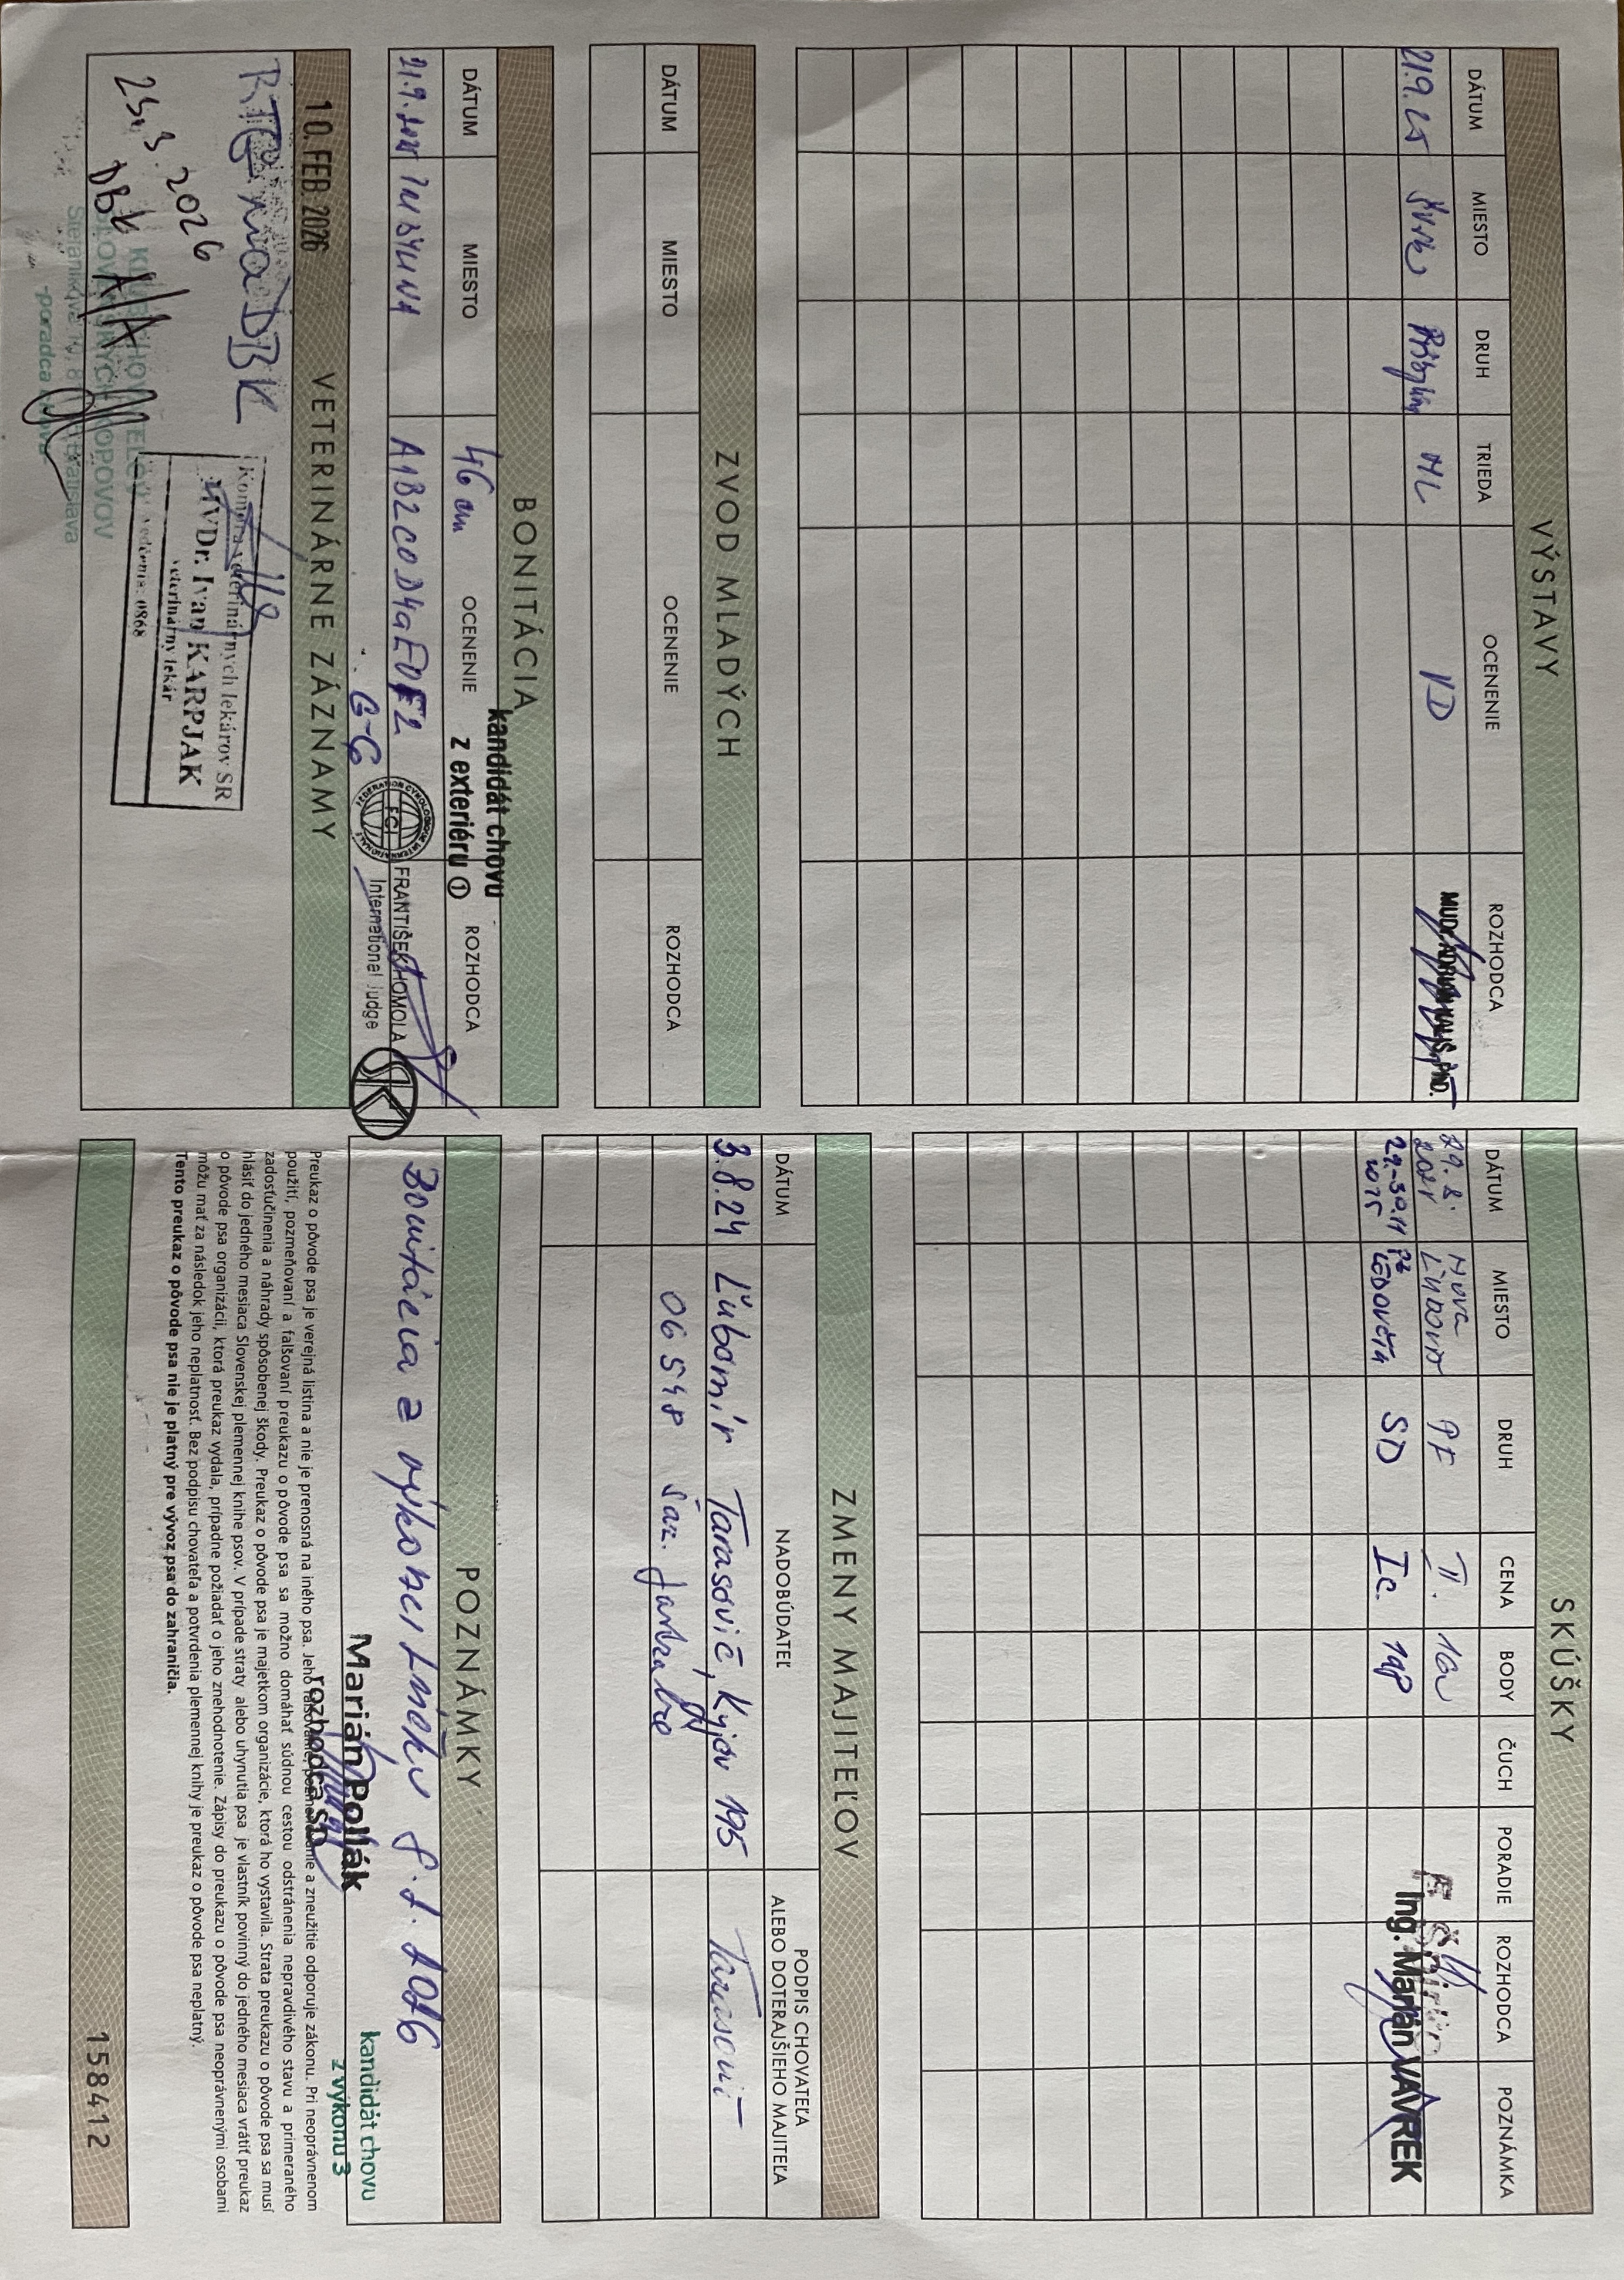 VÝSTAVY
DÁTUM MIESTO DRUH TRIEDA OCENENIE ROZHODCA
21.9.25 ML VD MUDr.
ZVOD MLADÝCH
DÁTUM MIESTO OCENENIE ROZHODCA
BONITÁCIA
kandidát chovu
DÁTUM MIESTO 46 cm OCENENIE z exteriéru ① ROZHODCA
21.9.2025 A1B2C0D4aE0F2 FRANTIŠEK HOMOLA
G-6 FCI International Judge SKJ
10. FEB. 2026 VETERINÁRNE ZÁZNAMY
RTG na DBK
Komora veterinárnych lekárov SR
MVDr. Ivan KARPJAK
veterinárny lekár
0868
25.3.2026
DBK A/A
KLUB CHOVATEĽOV
SLOVENSKÝCH KOPOVOV
Štefánikova 10, Bratislava
-poradca chovu-
SKÚŠKY
DÁTUM MIESTO DRUH CENA BODY ČUCH PORADIE ROZHODCA POZNÁMKA
29.8. Nová
Ľubovňa PF II.
29.-30.11 SD Ic. Ing. Marián VAVREK
ZMENY MAJITEĽOV
DÁTUM NADOBÚDATEĽ PODPIS CHOVATEĽA
ALEBO DOTERAJŠIEHO MAJITEĽA
3.8.24 Ľubomír Tarasovič, Kyjov 195
065 48 Šar. Jastrabie
POZNÁMKY
Bonitácia z výkonu
kandidát chovu
z výkonu 3
Marián Pollák
rozhodca SD
Preukaz o pôvode psa je verejná listina a nie je prenosná na iného psa. Jeho falšovanie, pozmeňovanie a zneužitie odporuje zákonu. Pri neoprávnenom
použití, pozmeňovaní a falšovaní preukazu o pôvode psa sa možno domáhať súdnou cestou odstránenia nepravdivého stavu a primeraného
zadosťučinenia a náhrady spôsobenej škody. Preukaz o pôvode psa je majetkom organizácie, ktorá ho vystavila. Strata preukazu o pôvode psa sa musí
hlásiť do jedného mesiaca Slovenskej plemennej knihe psov. V prípade straty alebo uhynutia psa je vlastník povinný do jedného mesiaca vrátiť preukaz
o pôvode psa organizácii, ktorá preukaz vydala, prípadne požiadať o jeho znehodnotenie. Zápisy do preukazu o pôvode psa neoprávnenými osobami
môžu mať za následok jeho neplatnosť. Bez podpisu chovateľa a potvrdenia plemennej knihy je preukaz o pôvode psa neplatný.
Tento preukaz o pôvode psa nie je platný pre vývoz psa do zahraničia.
158412